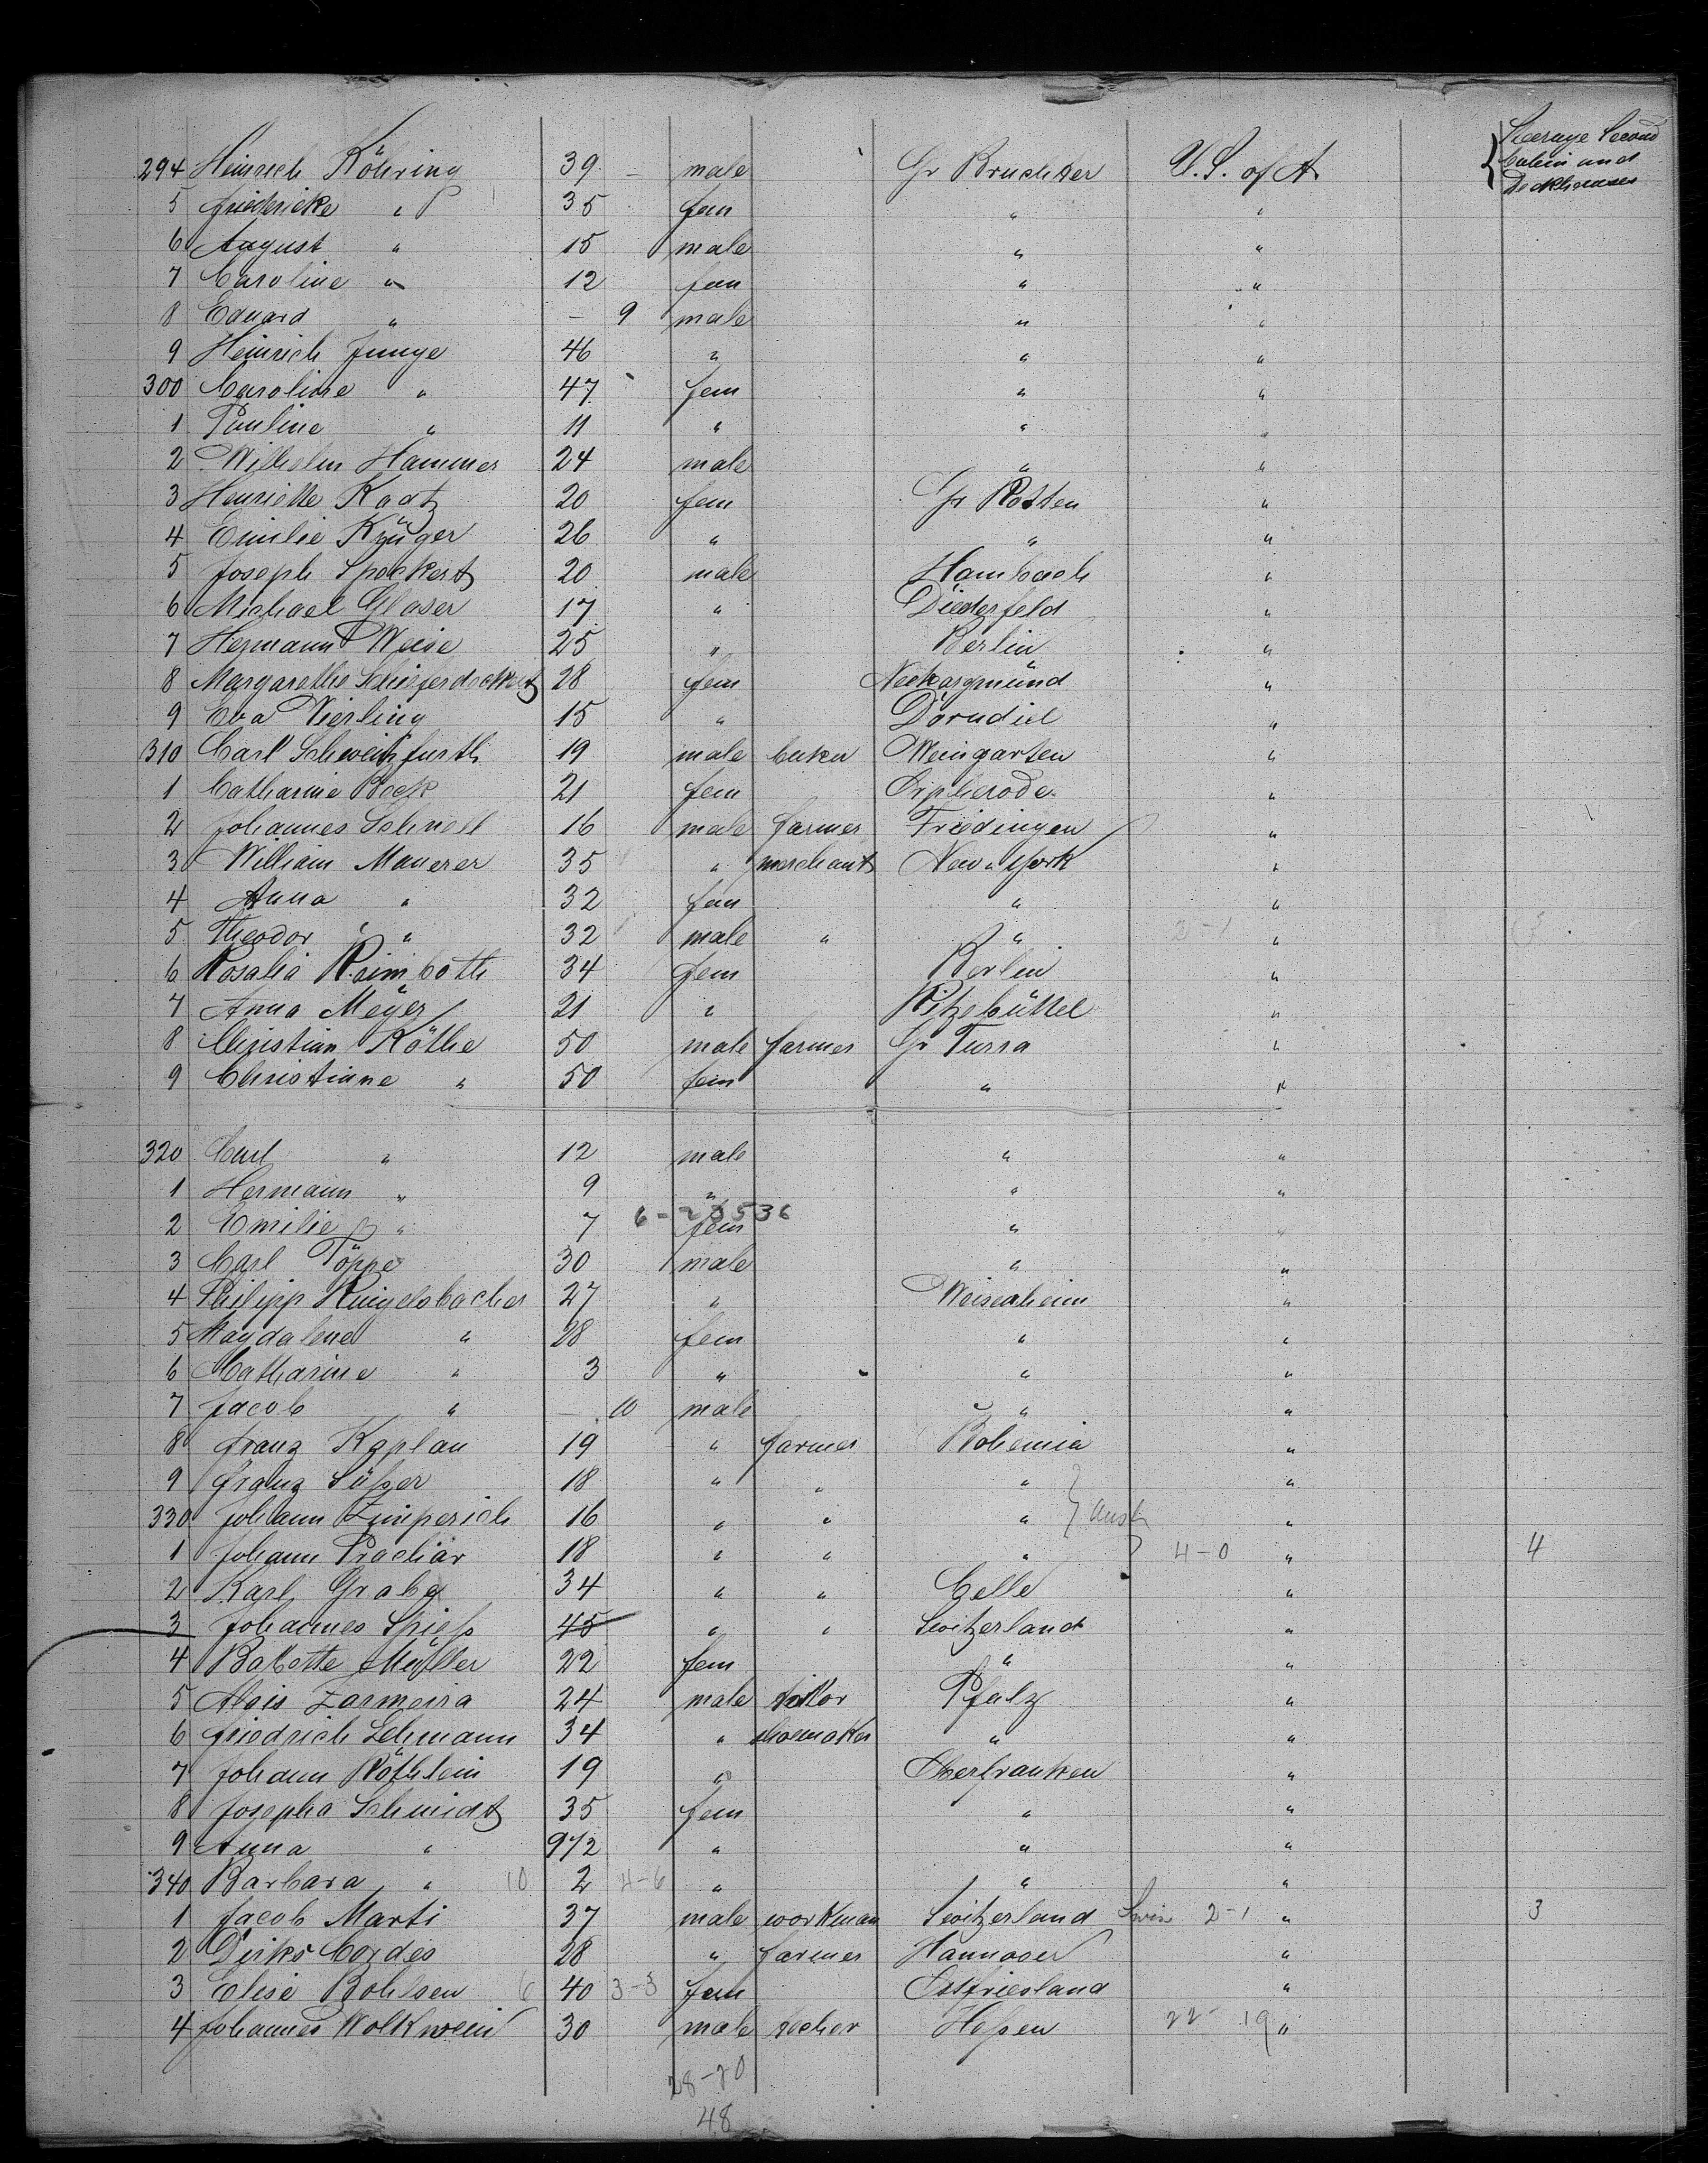 Steerage Second
Cabin and
Deckhouses
294 Heinrich Köhring 39 male Gr Bruchter U. S. of A
5 Friedericke " 35 fem " "
6 August " 15 male " "
7 Caroline " 12 fem " "
8 Eduard " — 9 male " "
9 Heinrich Junge 46 " " "
300 Caroline " 47 fem " "
1 Pauline " 11 " " "
2 Wilhelm Hammer 24 male " "
3 Henriette Kaatz 20 fem Gr Potten "
4 Emilie Krüger 26 " " "
5 Joseph Spockert 20 male Hambach "
6 Michael Glaser 17 " Diederfeld "
7 Hermann Weise 25 " Berlin "
8 Margarethe Schieferdeckert 28 fem Neckargmünd "
9 Eva Vierling 15 " Dörndiel "
310 Carl Schweitzfurth 19 male Weingarten "
1 Catharine Bock 21 fem Orpherode "
2 Johannes Schnell 16 male farmer Friedingen "
3 William Maurer 35 " merchant New York "
4 Anna " 32 fem " "
5 Theodor " 32 male " " 2-1 "
6 Rosalia Reimboth 34 fem Berlin "
7 Anna Meyer 21 " Ritzebüttel "
8 Christian Köthe 50 male farmer Gr Furra "
9 Christiane " 50 fem " "
320 Carl " 12 male " "
1 Hermann " 9 " " "
6-23536
2 Emilie " 7 fem " "
3 Carl Töppe 30 male " "
4 Philipp Ringelsbacher 27 " Weisenheim "
5 Magdalena " 28 fem " "
6 Catharine " 3 " " "
7 Jacob " — 10 male " "
8 Franz Kaplan 19 " farmer Bohemia "
9 Franz Süßer 18 " " " "
330 Johann Zimperich 16 " " " Aust "
1 Johann Prachar 18 " " " 4-0 " 4
2 Karl Grabe 34 " " Celle "
3 Johannes Spieß 45 " " Switzerland "
4 Babette Müller 22 fem " "
5 Alois Zarmeira 24 male tailor Pfalz "
6 Friedrich Lehmann 34 " shoemaker " "
7 Johann Röthlein 19 " Oberfranken "
8 Josepha Schmidt 35 fem " "
9 Anna " 9 1/2 " " "
340 Barbara " 10 2 4-6 " " "
1 Jacob Marti 37 male workman Switzerland Swis 2-1 " 3
2 Dirks Cordes 28 " farmer Hannover "
3 Elise Bohlsen 6 40 3-3 fem Ostfriesland "
4 Johannes Wolkwein 30 male Heßen 22-19 "
28-20
48